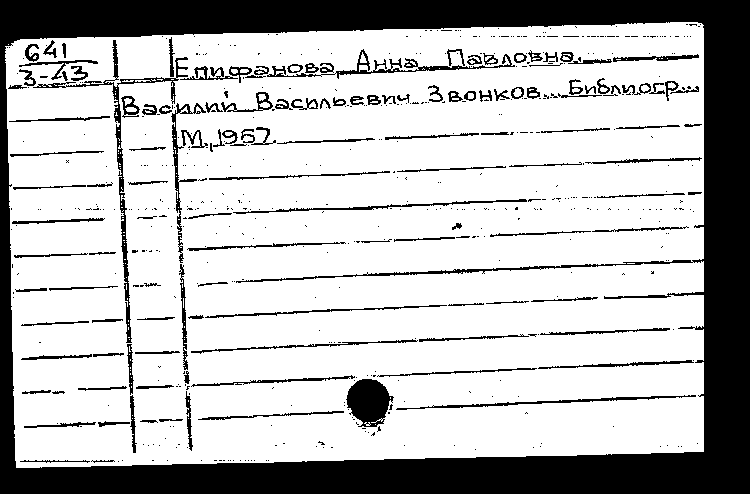 641
З-43
Епифанова, Анна Павловна.
Василий Васильевич Звонков... Библиогр...
М., 1967.